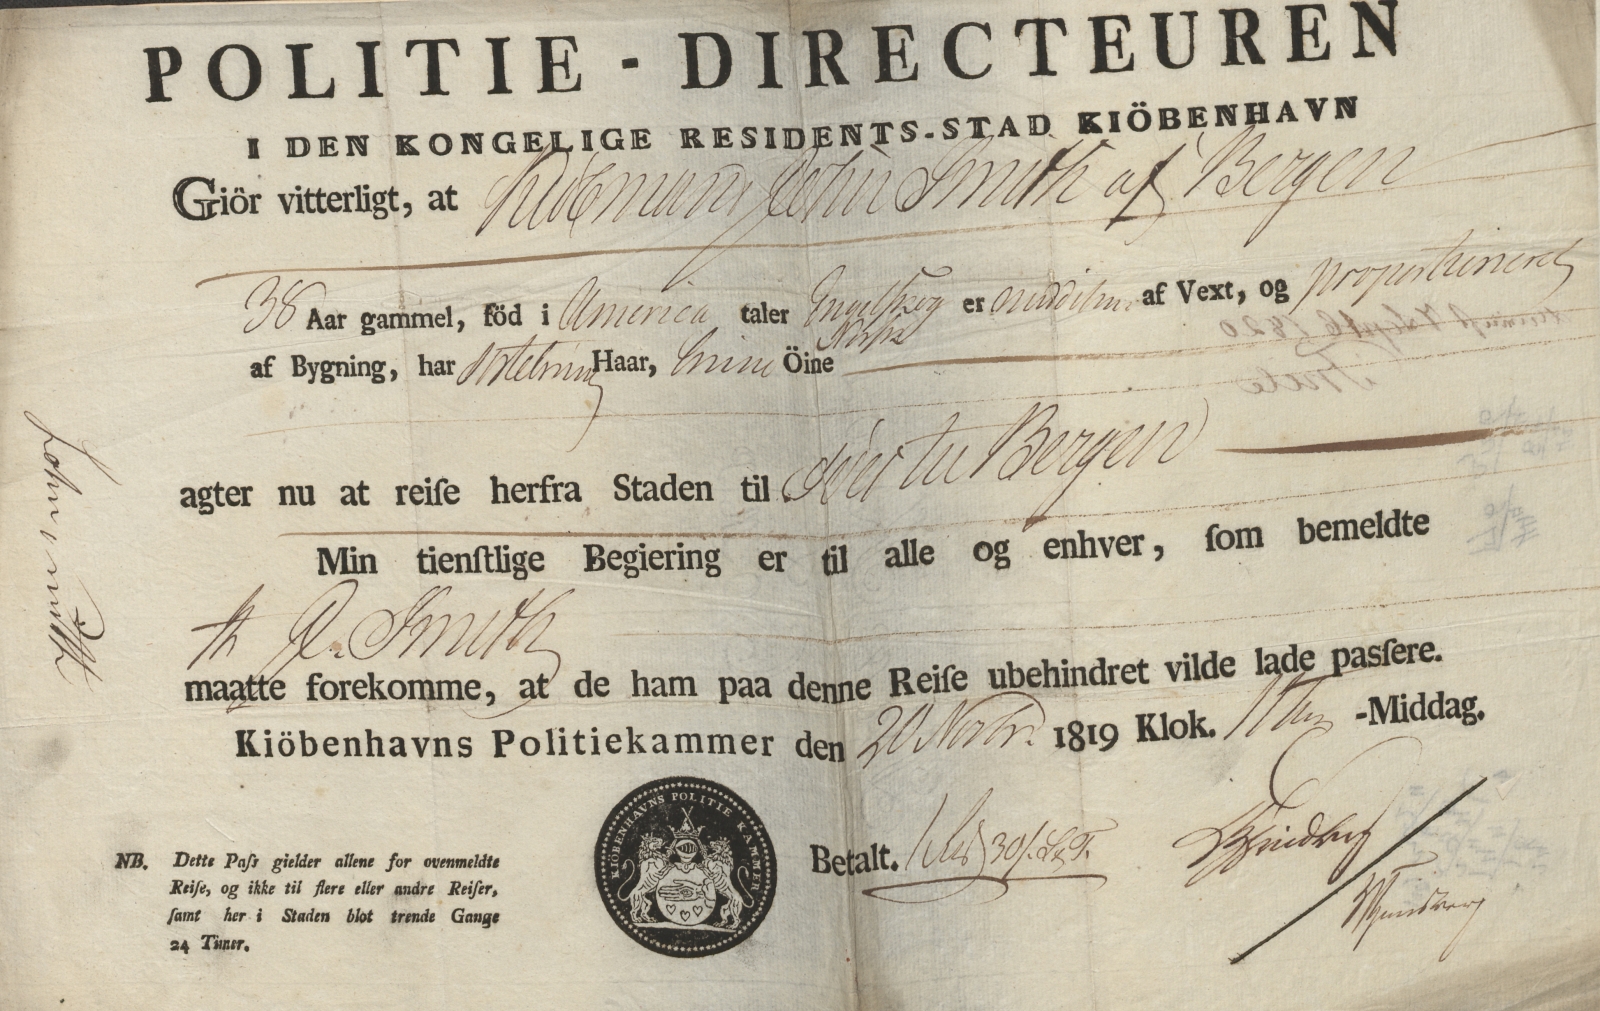 POLITIE - DIRECTEUREN
I DEN KONGELIGE RESIDENTS-STAD KIÖBENHAVN
Giör vitterligt, at Kiöbmand John Smith af Bergen
38 Aar gammel, föd i America taler Engelsk og Norsk er af Vext, og proportioneret
af Bygning, har Haar, Öine
agter nu at reiſe herfra Staden til til Bergen
Min tienſtlige Begiering er til alle og enhver, ſom bemeldte
Hr J. Smith
maatte forekomme, at de ham paa denne Reiſe ubehindret vilde lade paſſere.
Kiöbenhavns Politiekammer den 20 Novbr. 1819 Klok. -Middag.
John Smith
KIÖBENHAVNS POLITIE KAMMER
Betalt. 30
NB. Dette Paſs gielder allene for ovenmeldte
Reiſe, og ikke til flere eller andre Reiſer,
ſamt her i Staden blot trende Gange
24 Timer.